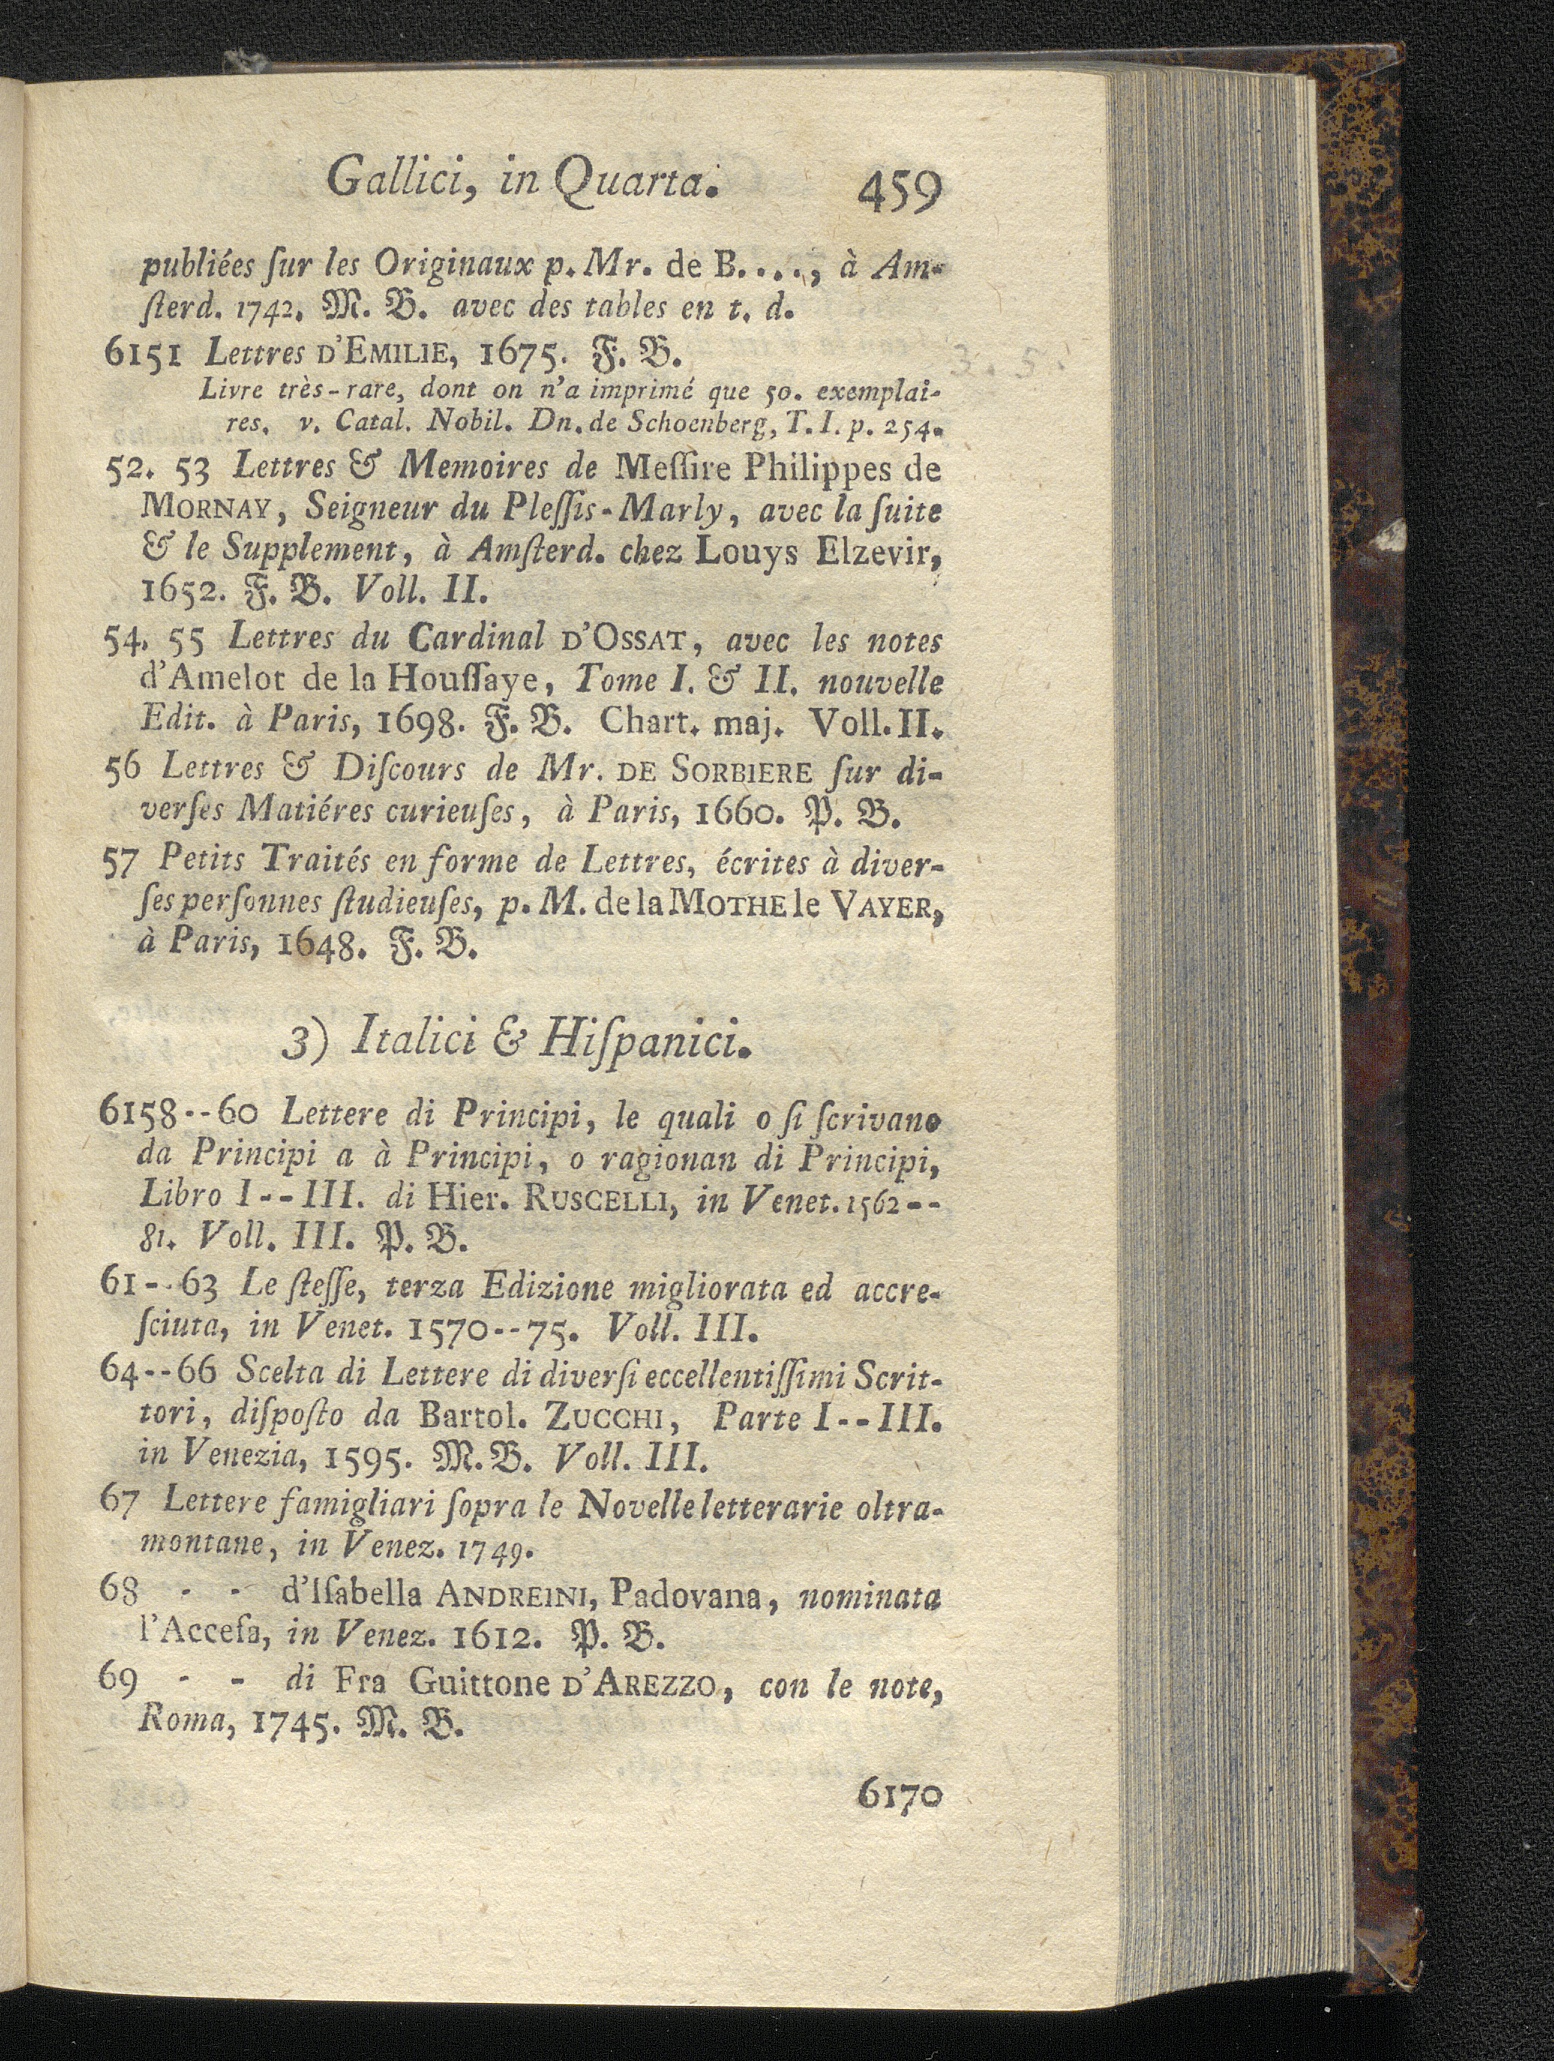 Gallici, in Quarta. 459
publiées ſur les Originaux p. Mr. de B...., à Am-
ſterd. 1742. M. B. avec des tables en t. d.
6151 Lettres D'EMILIE, 1675. F. B.
Livre très-rare, dont on n'a imprimé que 50. exemplai-
res. v. Catal. Nobil. Dn. de Schoenberg, T. I. p. 254.
52. 53 Lettres & Memoires de Meſſire Philippes de
MORNAY, Seigneur du Pleſſis-Marly, avec la ſuite
& le Supplement, à Amſterd. chez Louys Elzevir,
1652. F. B. Voll. II.
54. 55 Lettres du Cardinal D'OSSAT, avec les notes
d'Amelot de la Houſſaye, Tome I. & II. nouvelle
Edit. à Paris, 1698. F. B. Chart. maj. Voll. II.
56 Lettres & Diſcours de Mr. DE SORBIERE ſur di-
verſes Matiéres curieuſes, à Paris, 1660. P. B.
57 Petits Traités en forme de Lettres, écrites à diver-
ſes perſonnes ſtudieuſes, p. M. de la MOTHE le VAYER,
à Paris, 1648. F. B.
3) Italici & Hiſpanici.
6158--60 Lettere di Principi, le quali o ſi ſcrivano
da Principi a à Principi, o ragionan di Principi,
Libro I--III. di Hier. RUSCELLI, in Venet. 1562--
81. Voll. III. P. B.
61--63 Le ſteſſe, terza Edizione migliorata ed accre-
ſciuta, in Venet. 1570--75. Voll. III.
64--66 Scelta di Lettere di diverſi eccellentiſſimi Scrit-
tori, diſpoſto da Bartol. ZUCCHI, Parte I--III.
in Venezia, 1595. M. B. Voll. III.
67 Lettere famigliari ſopra le Novelle letterarie oltra-
montane, in Venez. 1749.
68 - - d'Iſabella ANDREINI, Padovana, nominata
l'Acceſa, in Venez. 1612. P. B.
69 - - di Fra Guittone D'AREZZO, con le note,
Roma, 1745. M. B.
6170